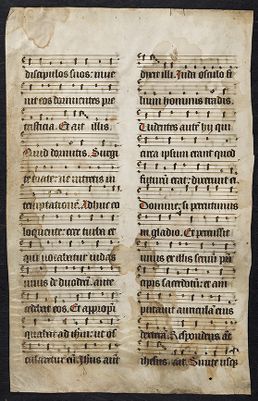 discipulos suos: inue
nit eos dormientes pre
tristicia. Et ait illis.
Quid dormitis. Surgi
te orate: ne intretis in
temptationē. Adhuc eo
loquente: ecce turba et
qui vocabatur iudas
unus de duodeci. ante
cedebat eos. Et appropī
quabat ad ihm: ut os
cularetur eū. Ihus aūt
dixit illi. Iuda osculo fi
lium hominis tradis.
Videntes autē hy qui
circa ipsum erant quod
futurū erat: dixerunt ei.
Domine: si percutimus
in gladio. Et percussit
unus ex illis seruū prī
cipis sacerdotū: et am
putauit auriculā eius
dexterā. Respondens āt
ihesus. ait. Sinite usqȝ